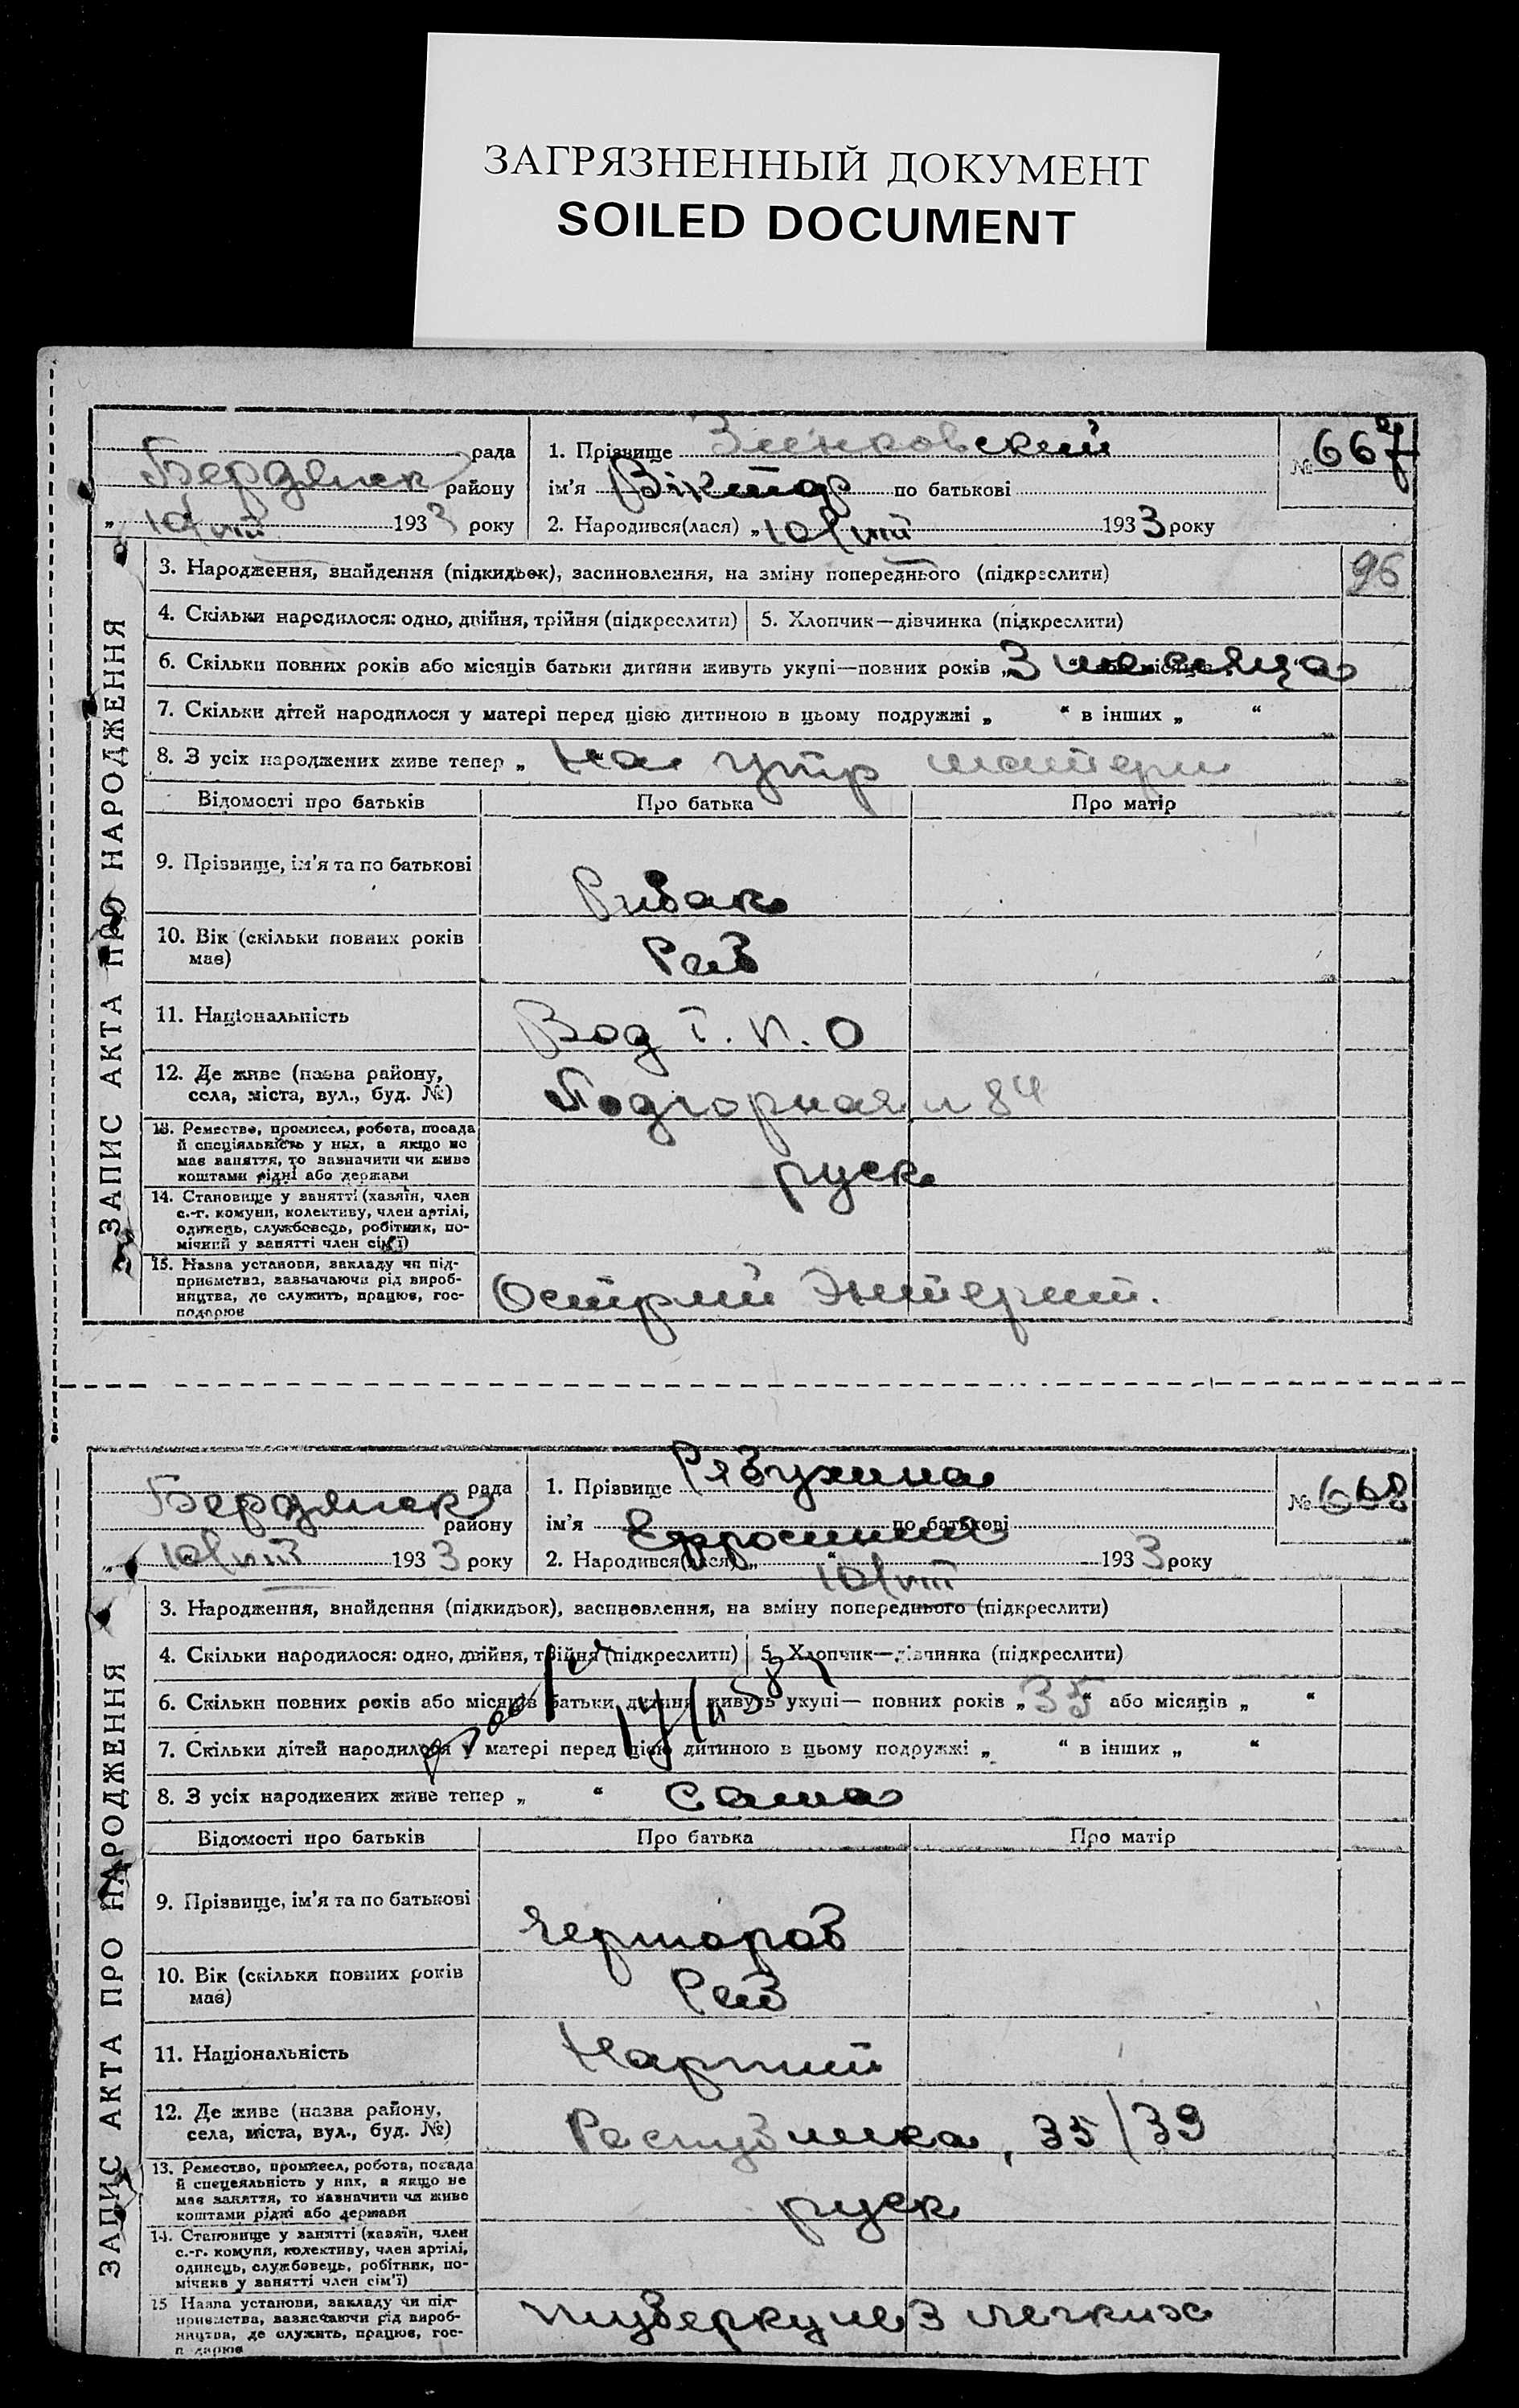 ЗАГРЯЗНЕННЫЙ ДОКУМЕНТ
SOILED DOCUMENT
ЗАПИС АКТА ПРО НАРОДЖЕННЯ
рада
Бердянск району
„10/VIII 1933 року
1. Прізвище Зинковский
ім'я Віктор по батькові
2. Народився(лася) „10/VIII 1933 року
№ 667
3. Народження, знайдення (підкидьок), засиновлення, на зміну попереднього (підкреслити)
96
4. Скільки народилося: одно, двійня, трійня (підкреслити)
5. Хлопчик—дівчинка (підкреслити)
6. Скільки повних років або місяців батьки дитини живуть укупі—повних років „3 месяца
7. Скільки дітей народилося у матері перед цією дитиною в цьому подружжі „ “ в інших „ “
8. З усіх народжених живе тепер „ На утр матери
Відомості про батьків
Про батька
Про матір
9. Прізвище, ім'я та по батькові
Рибак
10. Вік (скільки повних років має)
Раб
11. Національність
Вод Т. П. О
12. Де живе (назва району, села, міста, вул., буд. №)
Подгорная 84
13. Ремество, промисел, робота, посада
й спеціяльність у них, а якщо не
має заняття, то зазначити чи живе
коштами рідні або держави
руск
14. Становище у занятті (хазяїн, член
с.-г. комуни, колективу, член артілі,
одинець, службовець, робітник, по-
мічний у занятті член сім'ї)
15. Назва установи, закладу чи під-
приємства, зазначаючи рід вироб-
ництва, де служить, працює, гос-
подарює
Острий Энтерит.
ЗАПИС АКТА ПРО НАРОДЖЕННЯ
рада
Бердянск району
„10/VIII 1933 року
1. Прізвище Рябухина
ім'я Ефросиния по батькові
2. Народився(лася) „ 10/VIII 1933 року
№ 668
3. Народження, знайдення (підкидьок), засиновлення, на зміну попереднього (підкреслити)
4. Скільки народилося: одно, двійня, трійня (підкреслити)
5. Хлопчик—дівчинка (підкреслити)
6. Скільки повних років або місяців батьки дитини живуть укупі— повних років „35“ або місяців „ “
7. Скільки дітей народилося у матері перед цією дитиною в цьому подружжі „ “ в інших „ “
8. З усіх народжених живе тепер „ “ Сама
Відомості про батьків
Про батька
Про матір
9. Прізвище, ім'я та по батькові
10. Вік (скільки повних років має)
Раб
11. Національність
Нарпит
12. Де живе (назва району, села, міста, вул., буд. №)
Республика, 35/39
13. Ремество, промисел, робота, посада
й спецеяльність у них, а якщо не
має заняття, то зазначити чи живе
коштами рідні або держави
руск
14. Становище у занятті (хазяїн, член
с.-г. комуни, колективу, член артілі,
одинець, службовець, робітник, по-
мічник у занятті член сім'ї)
15 Назва установи, закладу чи під-
приємства, зазначаючи рід вироб-
ництва, де служить, працює, гос-
подарює
туберкулез легких